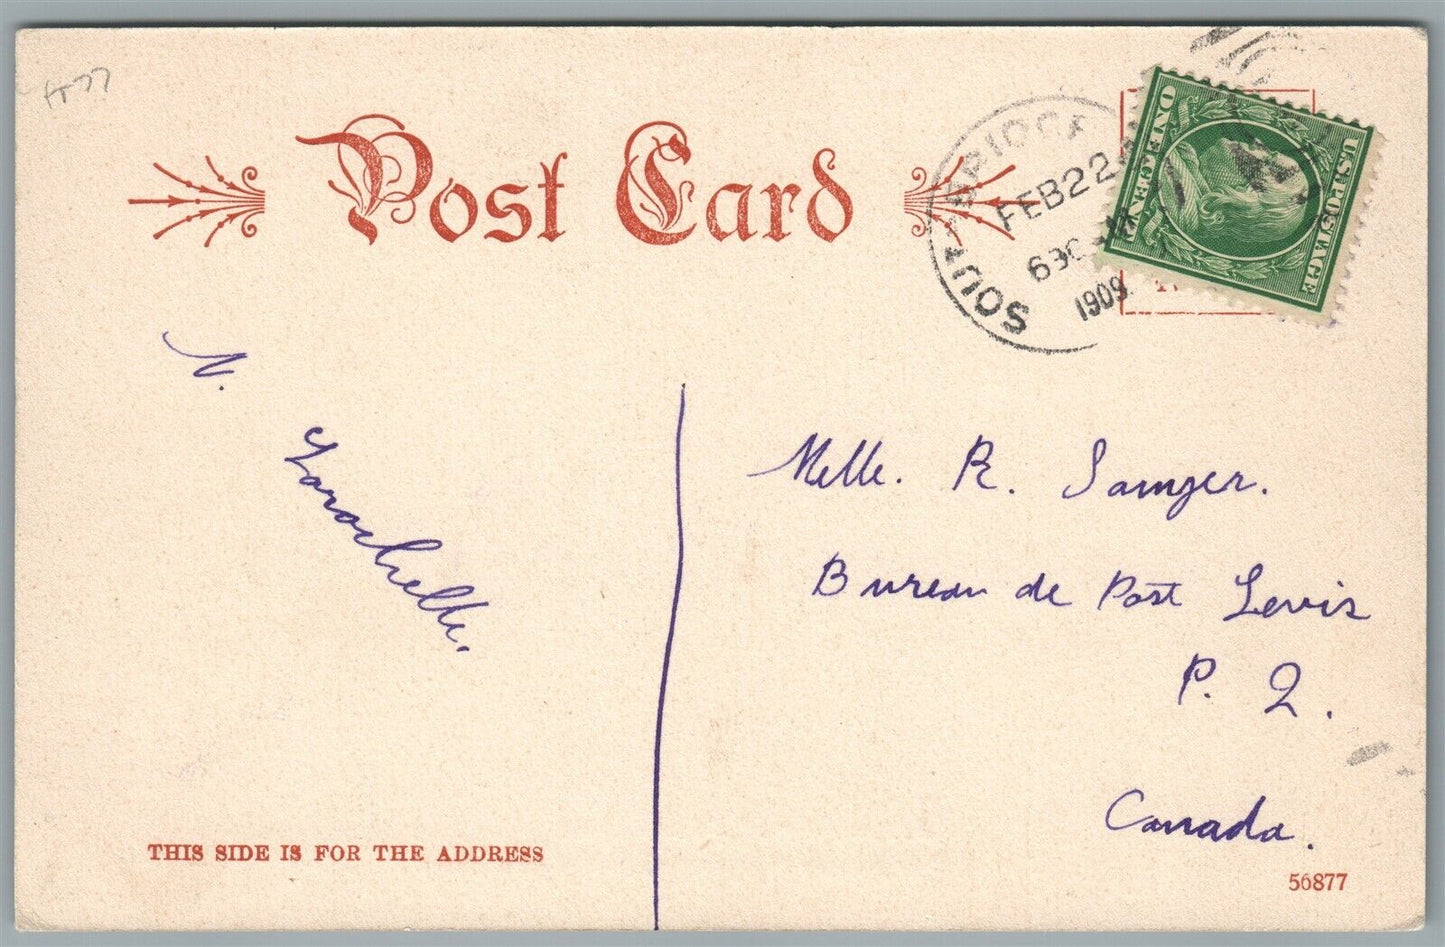 Post Card
SOUTHBRIDGE
FEB 22
630
1909
U.S. POSTAGE
ONE CENT
N.
Larochelle.
Melle. R. Samyer.
Bureau de Post Levis
P. Q.
Canada.
THIS SIDE IS FOR THE ADDRESS
56877